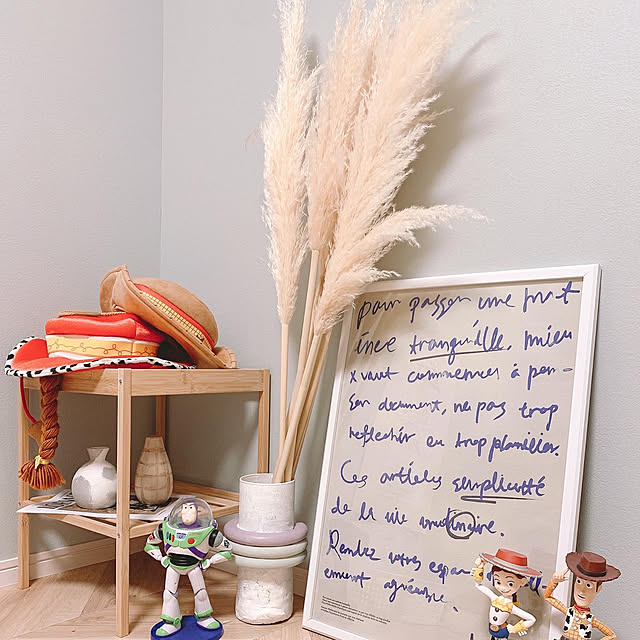 pour passer une
tranquille, mieu
x vaut commencer à pen-
ser document, ne pas trop
reflechir ou trop planifier.
Ces articles simplicité
de la vie
Rendez votre espa
agréable.